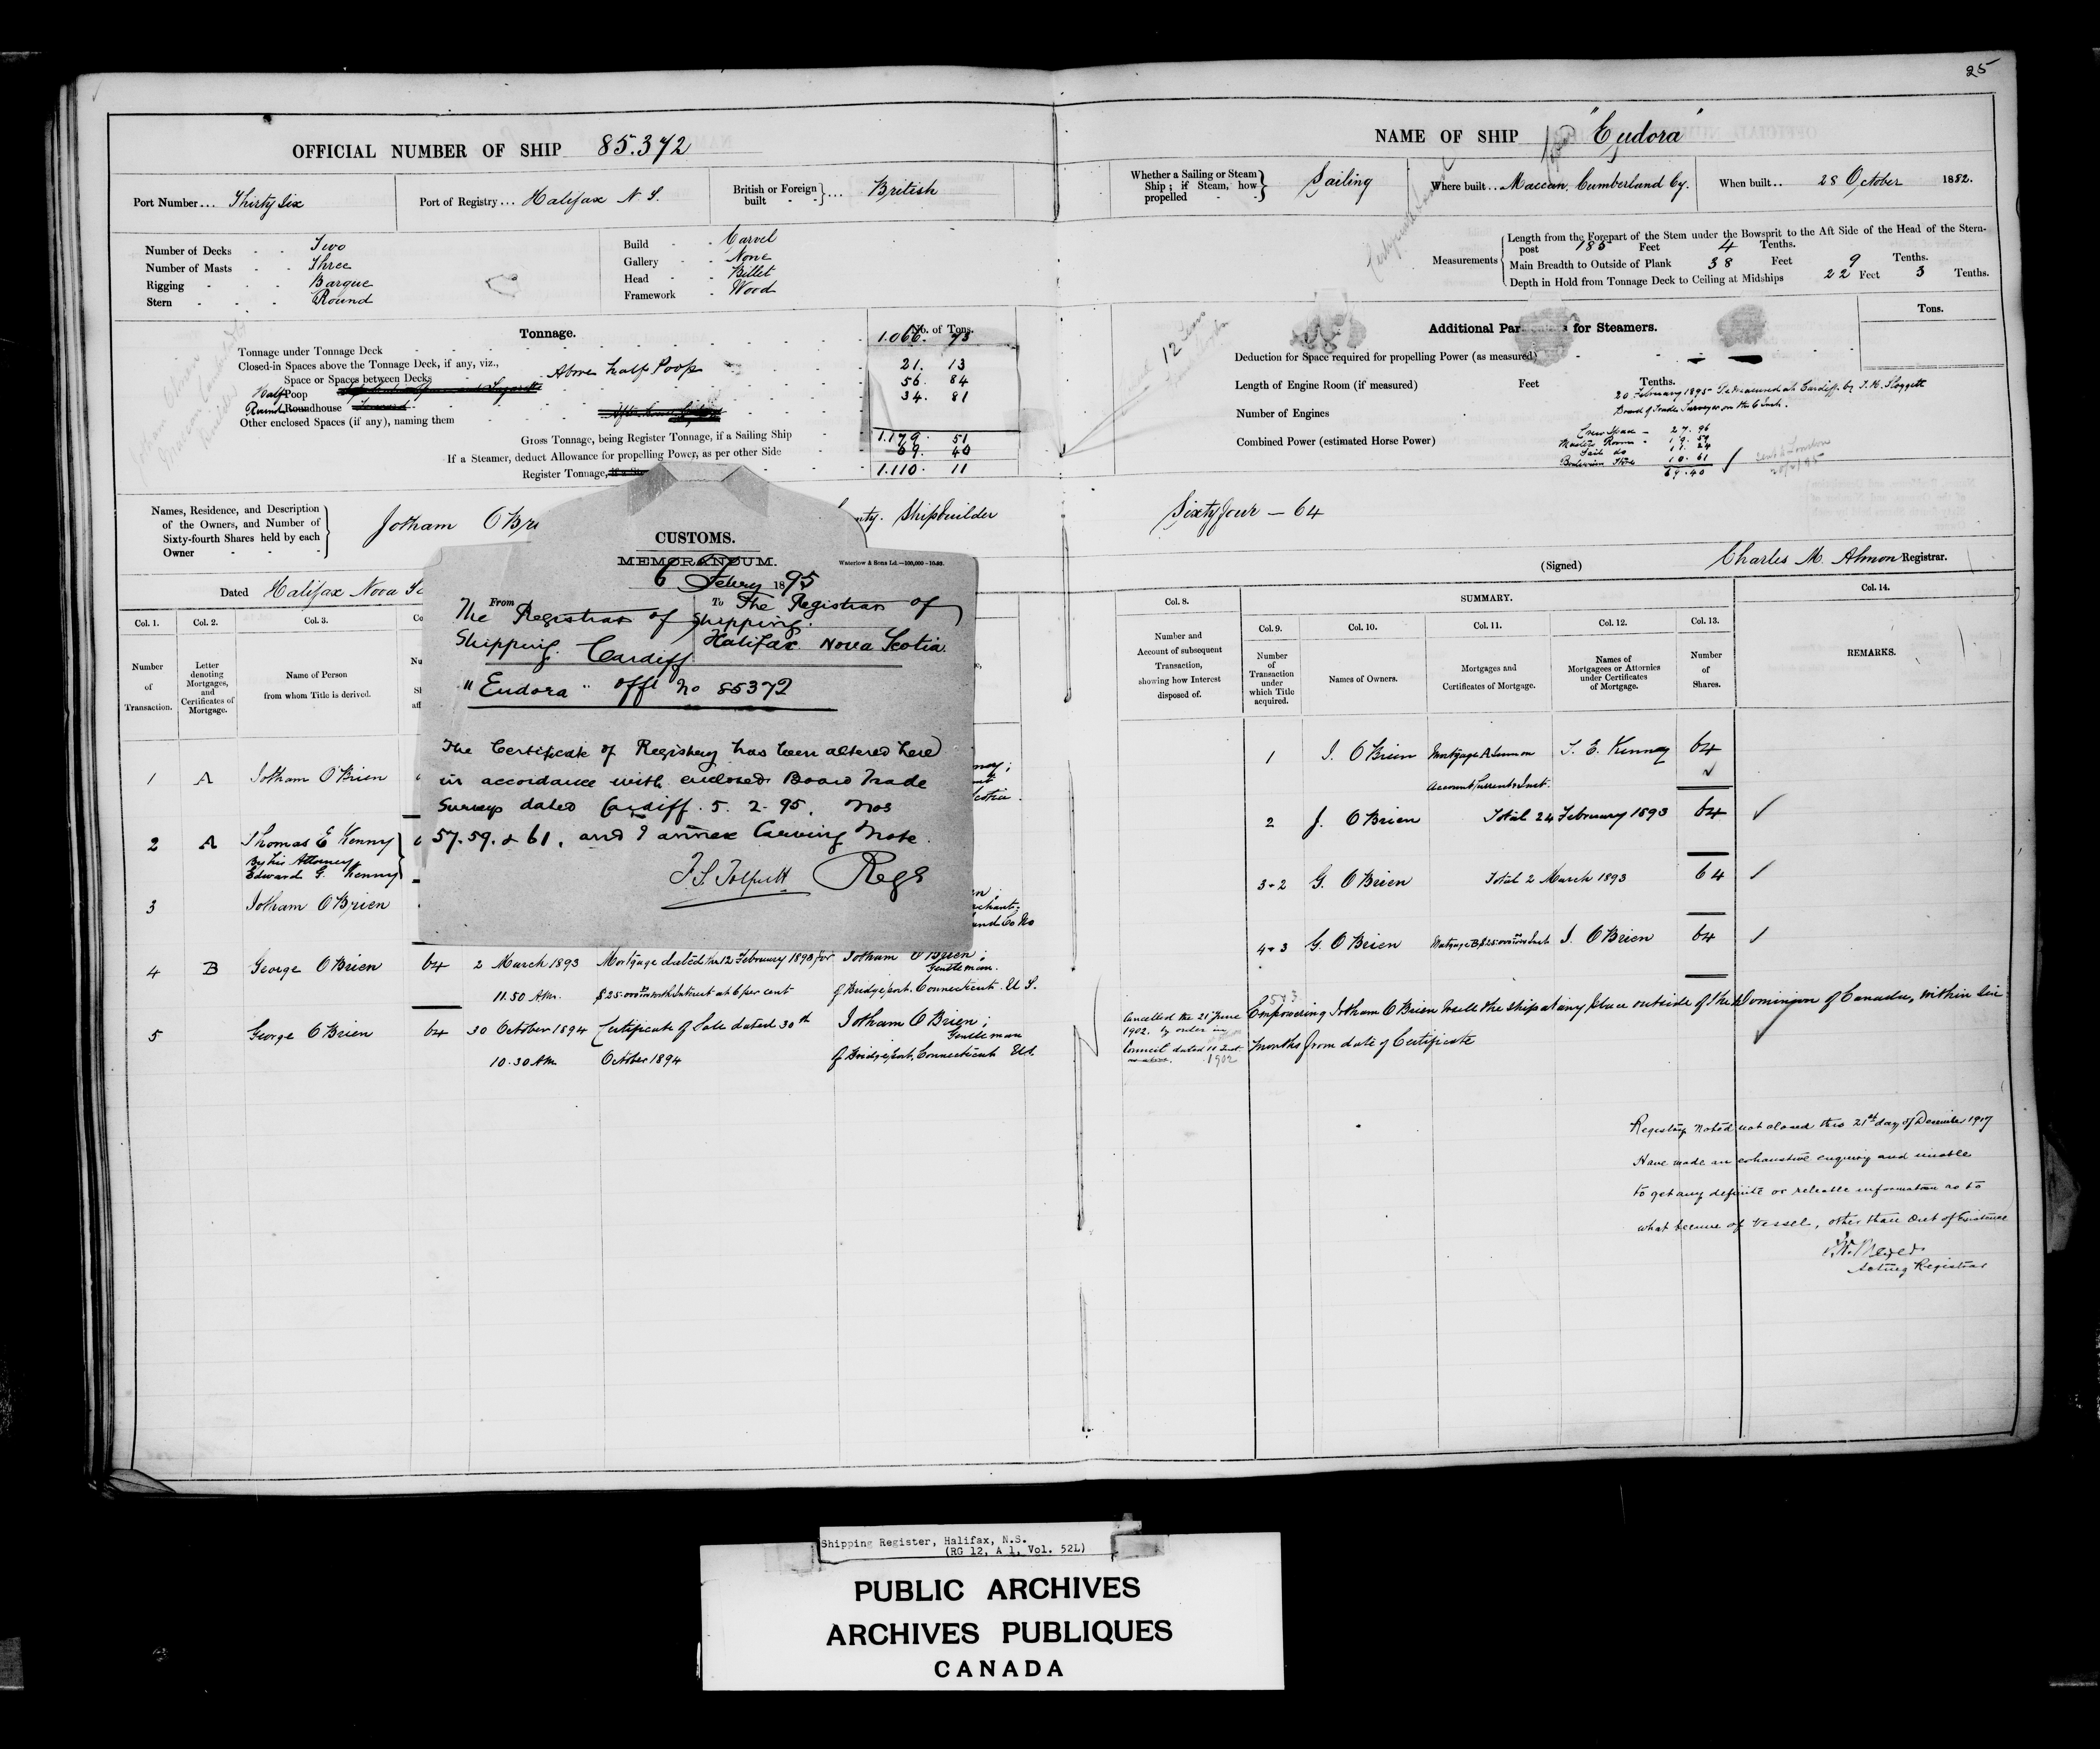 25
OFFICIAL NUMBER OF SHIP 85.372
NAME OF SHIP "Eudora"
Port Number... Thirty Six
Port of Registry... Halifax N.S.
British or Foreign built }... British
Whether a Sailing or Steam Ship; if Steam, how propelled } Sailing
Where built.. Maccan, Cumberland Cy.
When built.. 28 October 1882.
Number of Decks Two
Number of Masts Three
Rigging Barque
Stern Round
Build Carvel
Gallery None
Head Billet
Framework Wood
Measurements
Length from the Forepart of the Stem under the Bowsprit to the Aft Side of the Head of the Stern-
post 185 Feet 4 Tenths.
Main Breadth to Outside of Plank 38 Feet 9 Tenths.
Depth in Hold from Tonnage Deck to Ceiling at Midships 22 Feet 3 Tenths.
Tonnage.
No. of Tons.
Tonnage under Tonnage Deck 1.066. 73
Closed-in Spaces above the Tonnage Deck, if any, viz.,
Space or Spaces between Decks Above half Poop 21. 13
Half Poop 56. 84
Round Roundhouse 34. 81
Other enclosed Spaces (if any), naming them
Gross Tonnage, being Register Tonnage, if a Sailing Ship 1.179. 51
If a Steamer, deduct Allowance for propelling Power, as per other Side 69. 40
Register Tonnage, 1.110. 11
12 Tons
Additional Par for Steamers.
Tons.
Deduction for Space required for propelling Power (as measured)
Length of Engine Room (if measured) Feet Tenths.
Number of Engines
Combined Power (estimated Horse Power)
20 February 1895 Remeasured at Cardiff by
Board of Trade Surveyor on the 6 Inst.
Crew Space 27. 96
Masters Room
Sail do
Boatswain Store 10. 61
69.40
Names, Residence, and Description
of the Owners, and Number of
Sixty-fourth Shares held by each
Owner
Jotham OBri
nty. Shipbuilder
Sixty four — 64
Dated Halifax Nova Sc
(Signed) Charles M. Almon Registrar.
CUSTOMS.
MEMORANDUM.
Waterlow & Sons Ld.—100,000
6 Febry 1895
From The Registrar of
Shipping. Cardiff
To The Registrar of
Shipping.
Halifax. Nova Scotia
"Eudora" offl No 85372
The Certificate of Registry has been altered here
in accordance with enclosed Board Trade
Surveys dated Cardiff. 5. 2. 95. Nos
57. 59. & 61, and I annex Carving Note.
Regr
Col. 1.
Number
of
Transaction.
Col. 2.
Letter
denoting
Mortgages,
and
Certificates of
Mortgage.
Col. 3.
Name of Person
from whom Title is derived.
Col. 8.
Number and
Account of subsequent
Transaction,
showing how Interest
disposed of.
SUMMARY.
Col. 9.
Number
of
Transaction
under
which Title
acquired.
Col. 10.
Names of Owners.
Col. 11.
Mortgages and
Certificates of Mortgage.
Col. 12.
Names of
Mortgagees or Attornies
under Certificates
of Mortgage.
Col. 13.
Number
of
Shares.
Col. 14.
REMARKS.
1 A Jotham O'Brien
1 J. OBrien Mortgage A Sum on T. E. Kenny 64
Account Current & Inst.
2 A Thomas E Kenny
By his Attorney
Edward G. Kenny
2 J. OBrien Total 24 February 1893 64
3 Jotham OBrien
3+2 G. OBrien Total 2 March 1893 64
4 B George OBrien 64 2 March 1893 Mortgage dated the 12 February 1893 for Jotham OBrien;
Gentleman.
11.50 A.m. $25.000 with Interest at 6 per cent of Bridgeport. Connecticut. U.S.
4+3 G. OBrien Mortgage B $25.000 J. OBrien 64
5 George OBrien 64 30 October 1894 Certificate of Sale dated 30th Jotham OBrien;
Gentleman
10.30 Am. October 1894 of Bridgeport, Connecticut U.S.
Cancelled the 21 June
1902. by order in
Council dated 11 Inst
1902
Empowering Jotham OBrien to sell the ship at any place outside of the Dominion of Canada, within six
months from date of Certificate
Registry noted not closed this 21st day of December 1907
Have made an exhaustive enquiry and unable
to get any definite or reliable information as to
what became of vessel, other than Out of Existence
Acting Registrar
Shipping Register, Halifax, N.S.
(RG 12, A 1, Vol. 52L)
PUBLIC ARCHIVES
ARCHIVES PUBLIQUES
CANADA